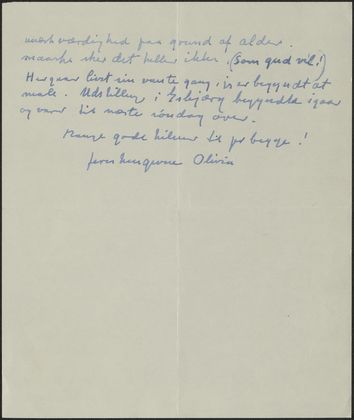 mærkværdighed paa grund af alder.
maaske sker det heller ikke! (Som gud vil!)
Her gaar livet sin vante gang, jeg er begyndt at
male. Udstilling i Esbjærg begyndte igaar
og varer til næste søndag over.
Mange gode hilsner til jer begge!
jeres hengivne Olivia